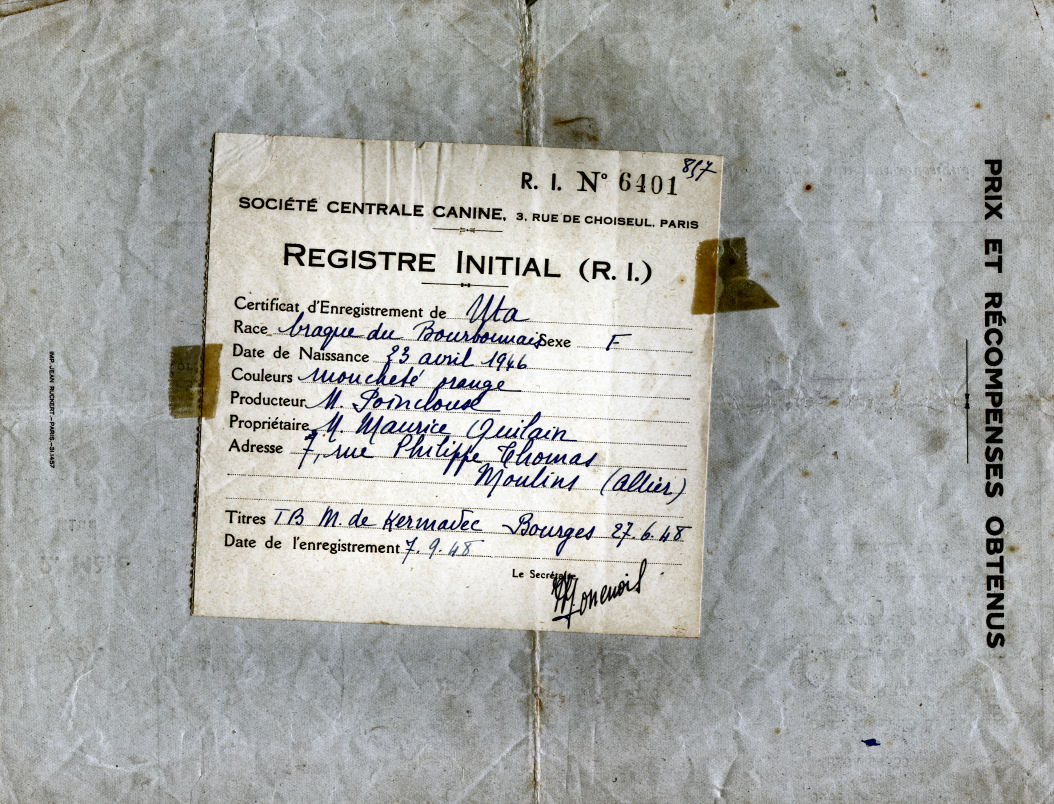 857
R. I. N° 6401
SOCIÉTÉ CENTRALE CANINE, 3, RUE DE CHOISEUL, PARIS
REGISTRE INITIAL (R. I.)
Certificat d'Enregistrement de Uta
Race braque du Bourbonnais Sexe F
Date de Naissance 23 avril 1946
Couleurs moucheté orange
Producteur M. Poincloux
Propriétaire M. Maurice Quilain
Adresse 7, rue Philippe Thomas
Moulins (Allier)
Titres TB M. de Kermadec Bourges 27.6.48
Date de l'enregistrement 7.9.48
Le Secrétaire
PRIX ET RÉCOMPENSES OBTENUS
IMP. JEAN RUCKERT - PARIS